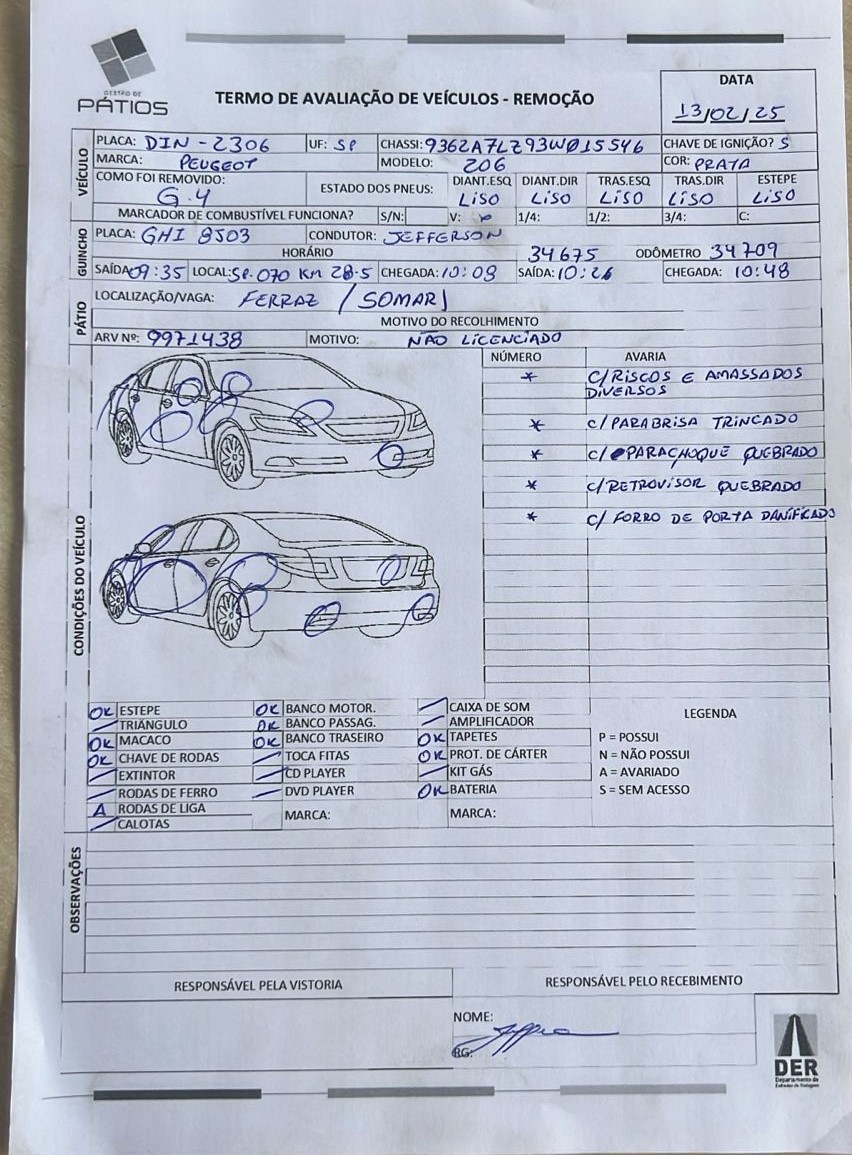 GESTÃO DE
PÁTIOS
TERMO DE AVALIAÇÃO DE VEÍCULOS - REMOÇÃO
DATA
13/02/25
VEÍCULO
PLACA: DIN - 2306 UF: SP CHASSI: 9362A7LZ93W015546 CHAVE DE IGNIÇÃO? S
MARCA: PEUGEOT MODELO: 206 COR: PRATA
COMO FOI REMOVIDO: G.4 ESTADO DOS PNEUS: DIANT.ESQ LISO DIANT.DIR LISO TRAS.ESQ LISO TRAS.DIR LISO ESTEPE LISO
MARCADOR DE COMBUSTÍVEL FUNCIONA? S/N: V: 1/4: 1/2: 3/4: C:
GUINCHO
PLACA: GHI 8503 CONDUTOR: JEFFERSON
HORÁRIO 34675 ODÔMETRO 34709
SAÍDA 09:35 LOCAL: SP-070 KM 28-5 CHEGADA: 10:08 SAÍDA: 10:26 CHEGADA: 10:48
PÁTIO
LOCALIZAÇÃO/VAGA: FERRAZ / SOMAR)
MOTIVO DO RECOLHIMENTO
ARV Nº: 9971438 MOTIVO: NÃO LICENCIADO
CONDIÇÕES DO VEÍCULO
NÚMERO AVARIA
* C/RISCOS E AMASSADOS
DIVERSOS
* C/PARABRISA TRINCADO
* C/ PARACHOQUE QUEBRADO
* C/RETROVISOR QUEBRADO
* C/ FORRO DE PORTA DANIFICADO
OK ESTEPE OK BANCO MOTOR. CAIXA DE SOM LEGENDA
TRIÂNGULO OK BANCO PASSAG. AMPLIFICADOR
OK MACACO OK BANCO TRASEIRO OK TAPETES P = POSSUI
OK CHAVE DE RODAS TOCA FITAS OK PROT. DE CÁRTER N = NÃO POSSUI
EXTINTOR CD PLAYER KIT GÁS A = AVARIADO
RODAS DE FERRO DVD PLAYER OK BATERIA S = SEM ACESSO
A RODAS DE LIGA MARCA: MARCA:
CALOTAS
OBSERVAÇÕES
RESPONSÁVEL PELA VISTORIA RESPONSÁVEL PELO RECEBIMENTO
NOME:
RG:
DER
Departamento de
Estradas de Rodagem